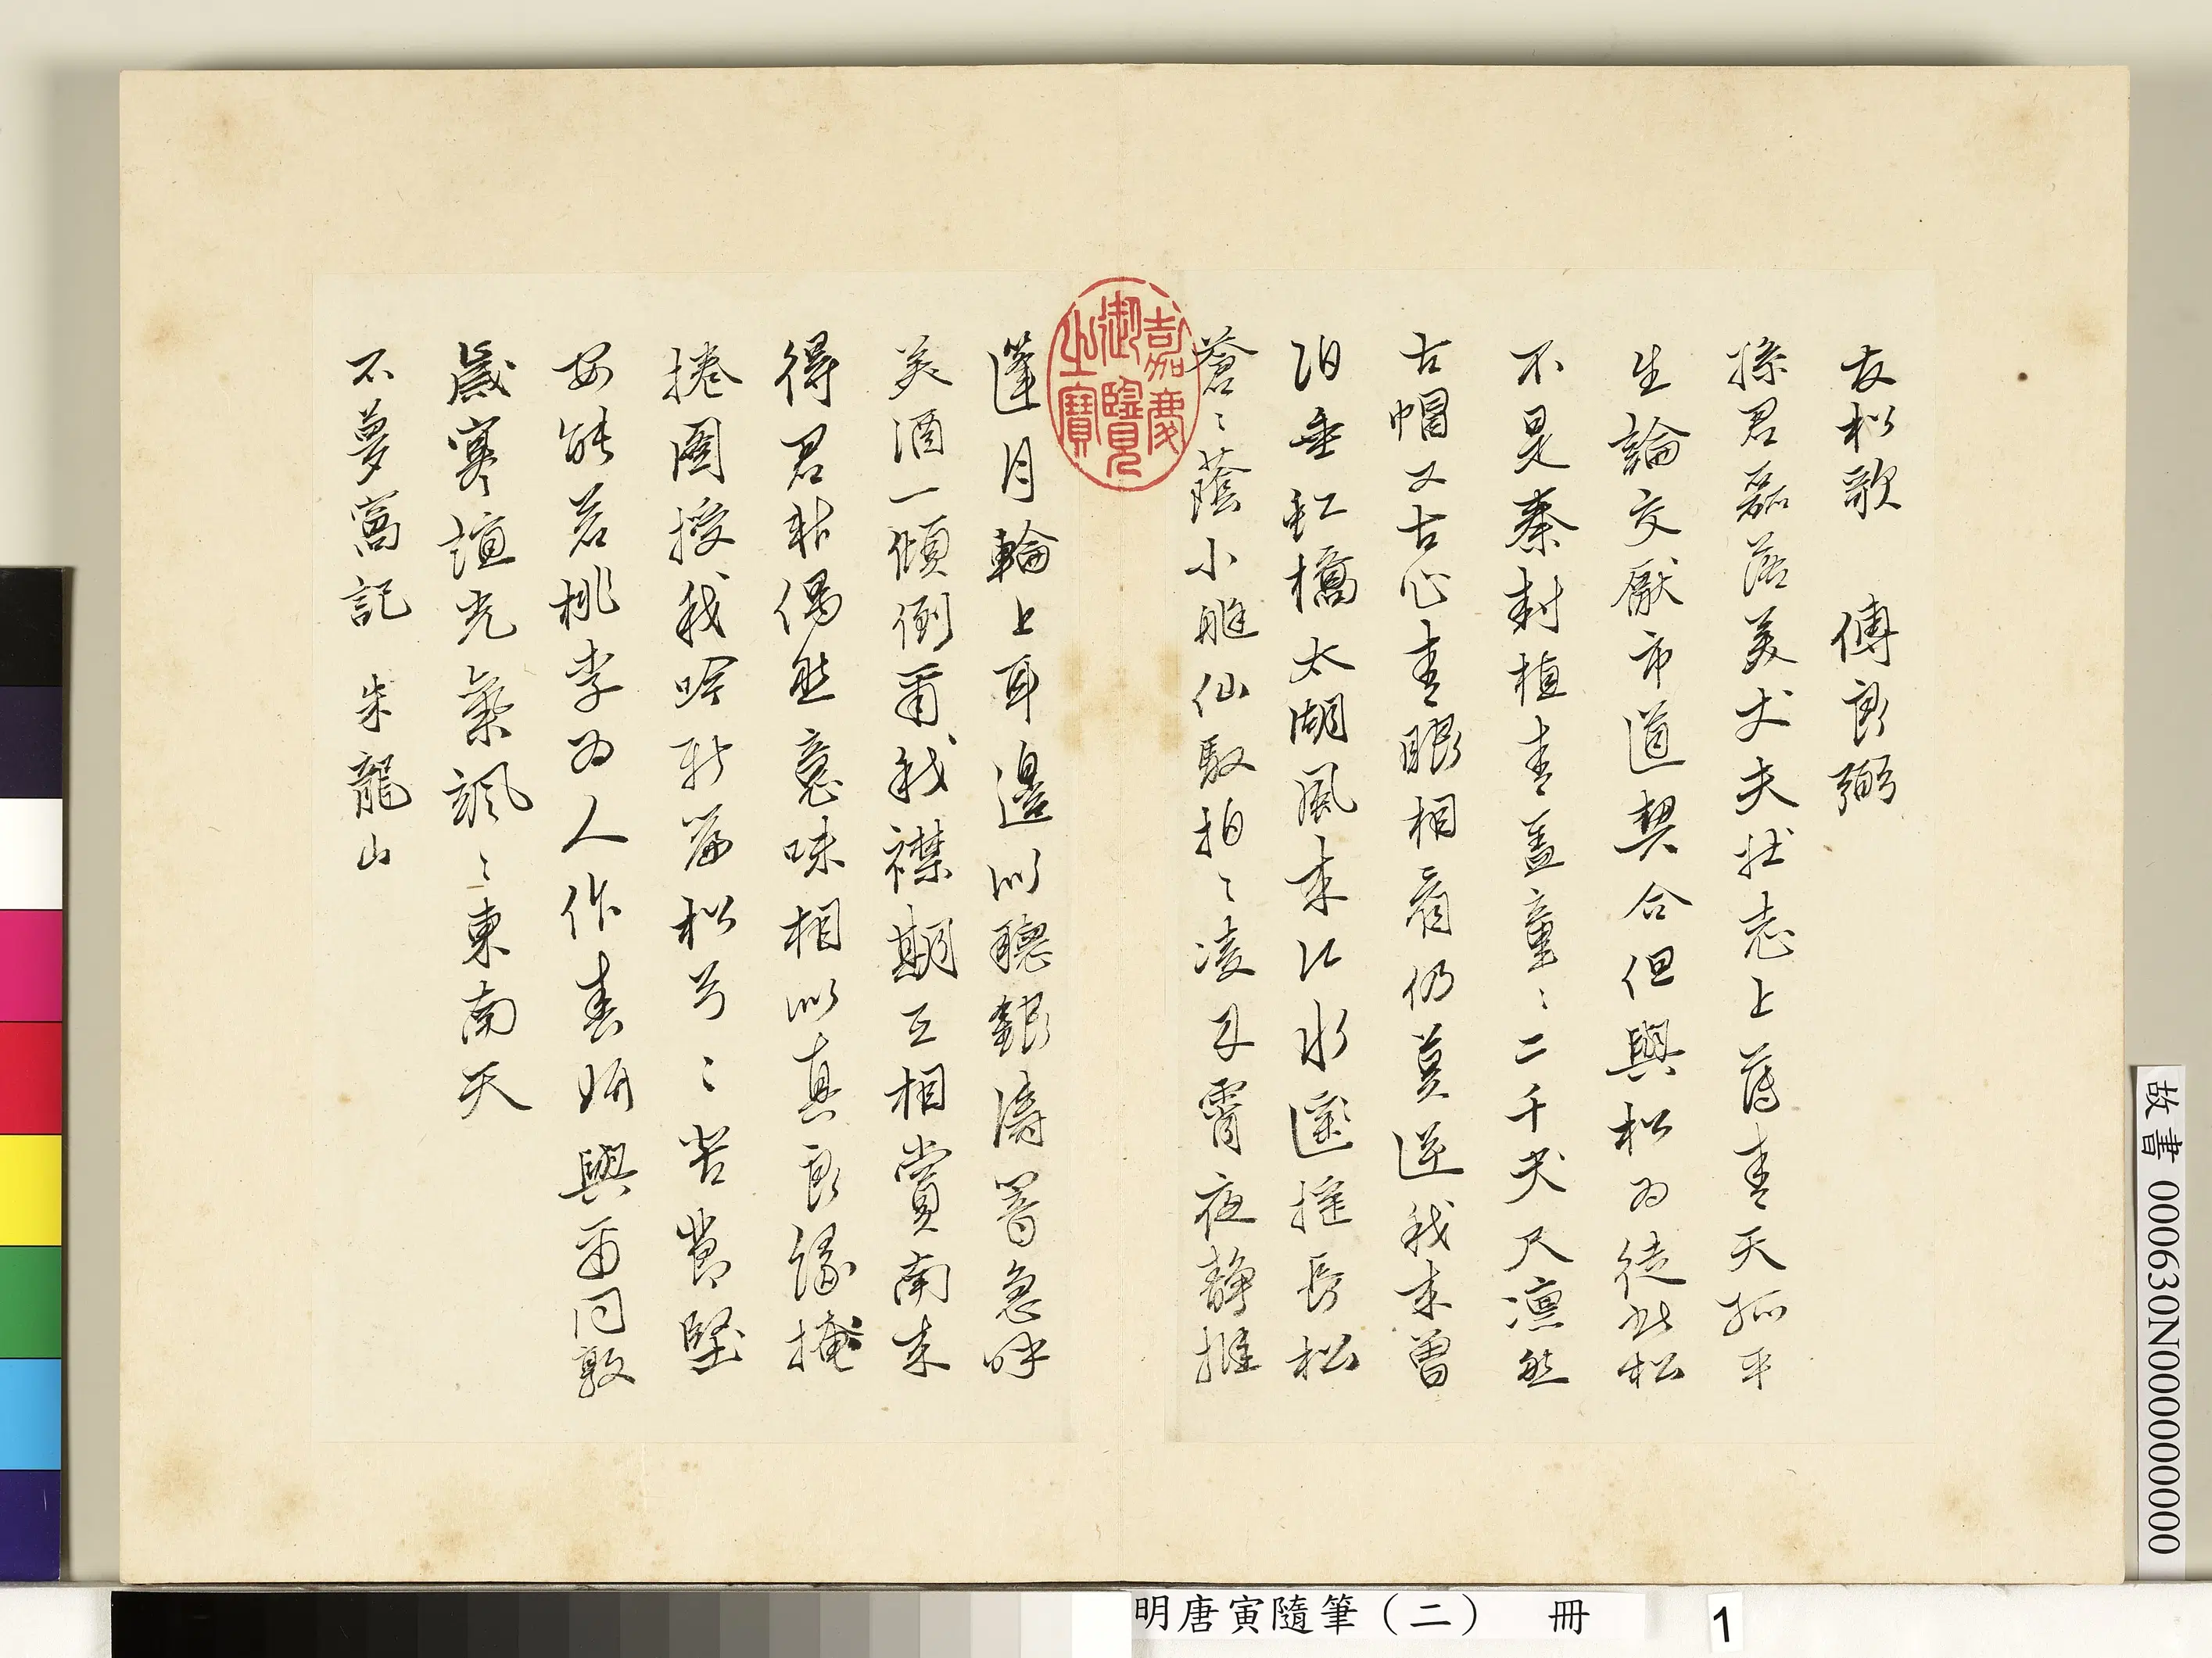 友松歌 傅良弼
孫君磊落美丈夫壯志上薄青天孤平
生論交厭市道契合但與松為徒此松
不是秦封植青蓋童〻二千尺凜然
古帽又古心青眼相看仍莫逆我未曾
泊垂虹橋太湖風來江水遙搖長松
蒼〻蔭小艇仙馭拍〻凌丹霄夜靜推
蓬月輪上耳邊似聽銀濤響急呼
美酒一傾倒爾我襟期互相賞南來
得君非偶然意味相似真良緣掩
捲圖授我吟新篇松兮〻苦節堅
安能若桃李為人作春妍與爾同敦
歲寒誼光氣颯〻東南天
不夢窩記 朱龍山
嘉慶
御覽
之寶
故書 000630N000000000
明唐寅隨筆（二） 冊 1